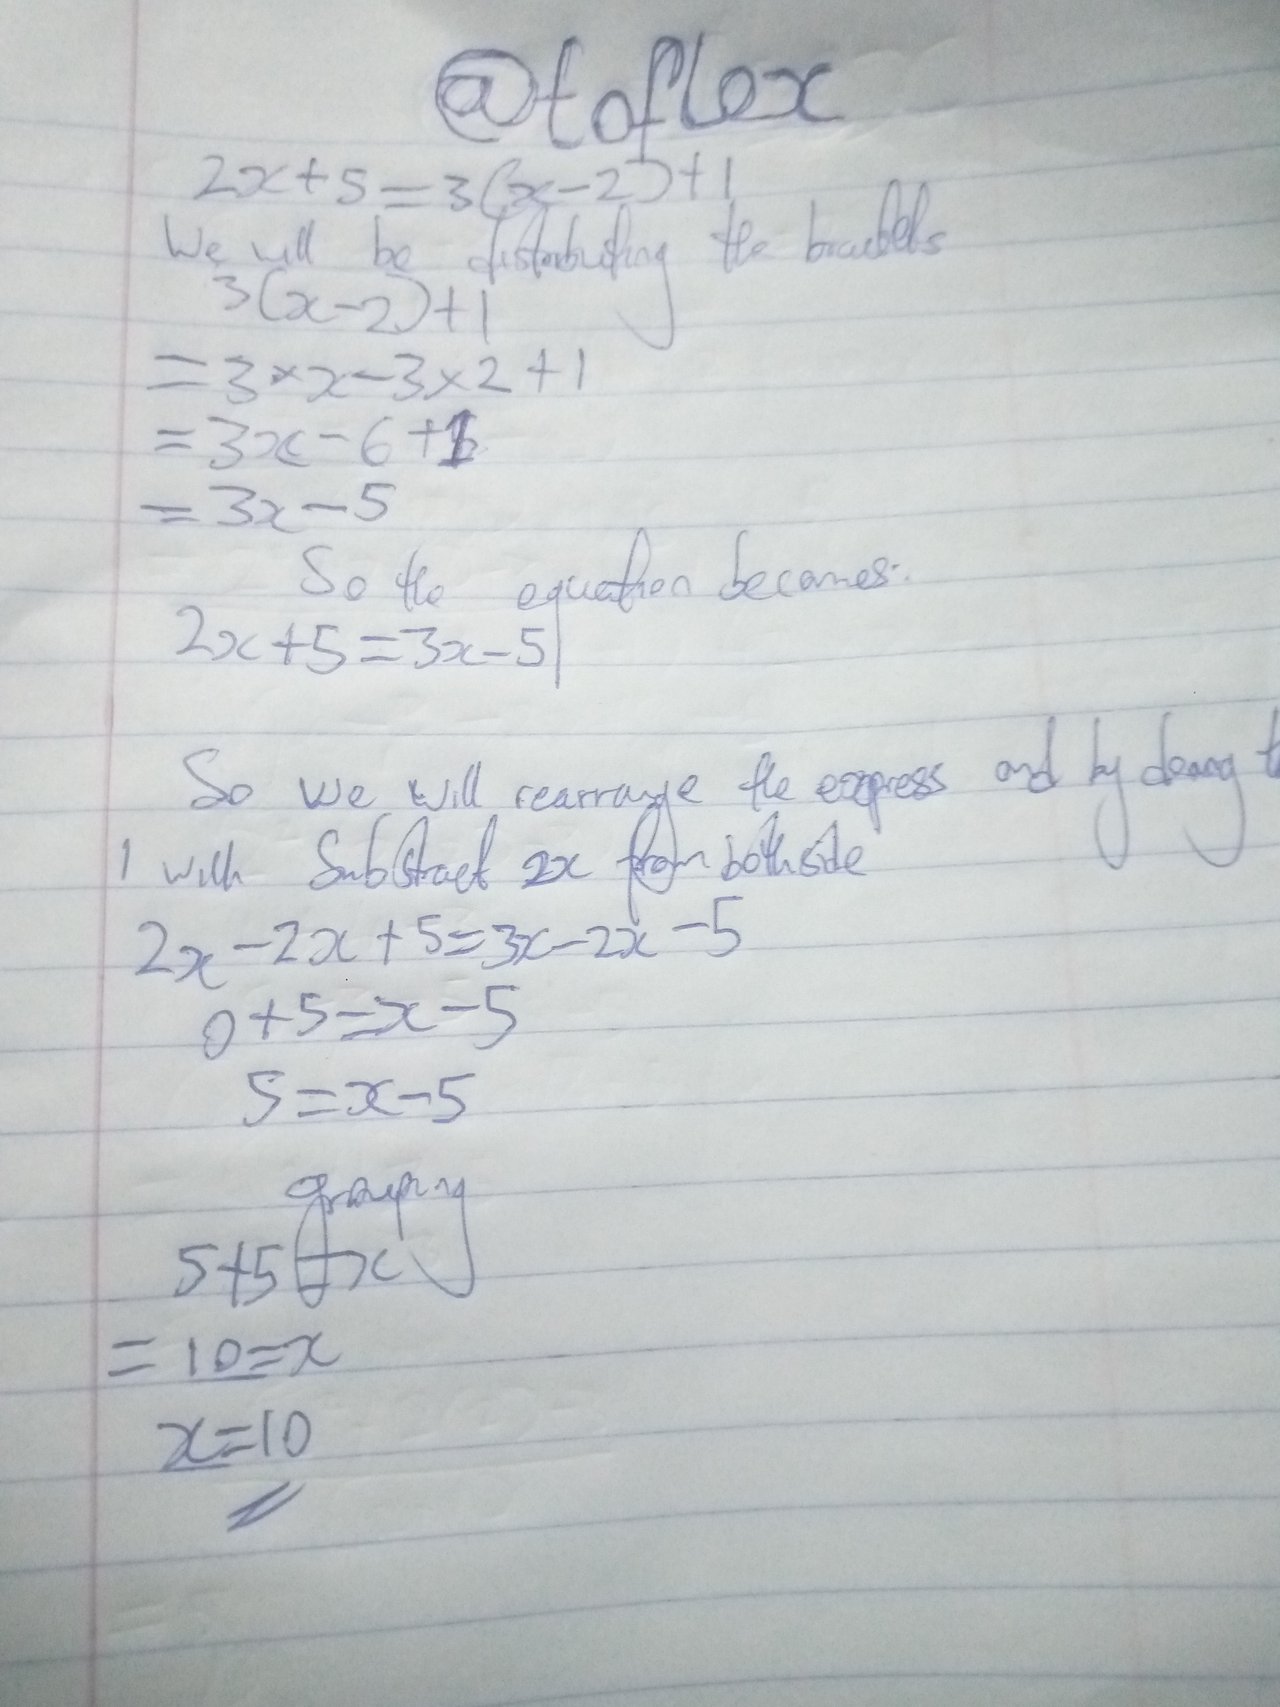 @toflex
2x+5=3(x-2)+1
We will be distributing the brackets
3(x-2)+1
=3×x-3×2+1
=3x-6+1
=3x-5
So the equation becomes:
2x+5=3x-5
So we will rearrange the express and by doing
I will Substract 2x from both side
2x-2x+5=3x-2x-5
0+5=x-5
5=x-5
grouping
5+5=x
=10=x
x=10